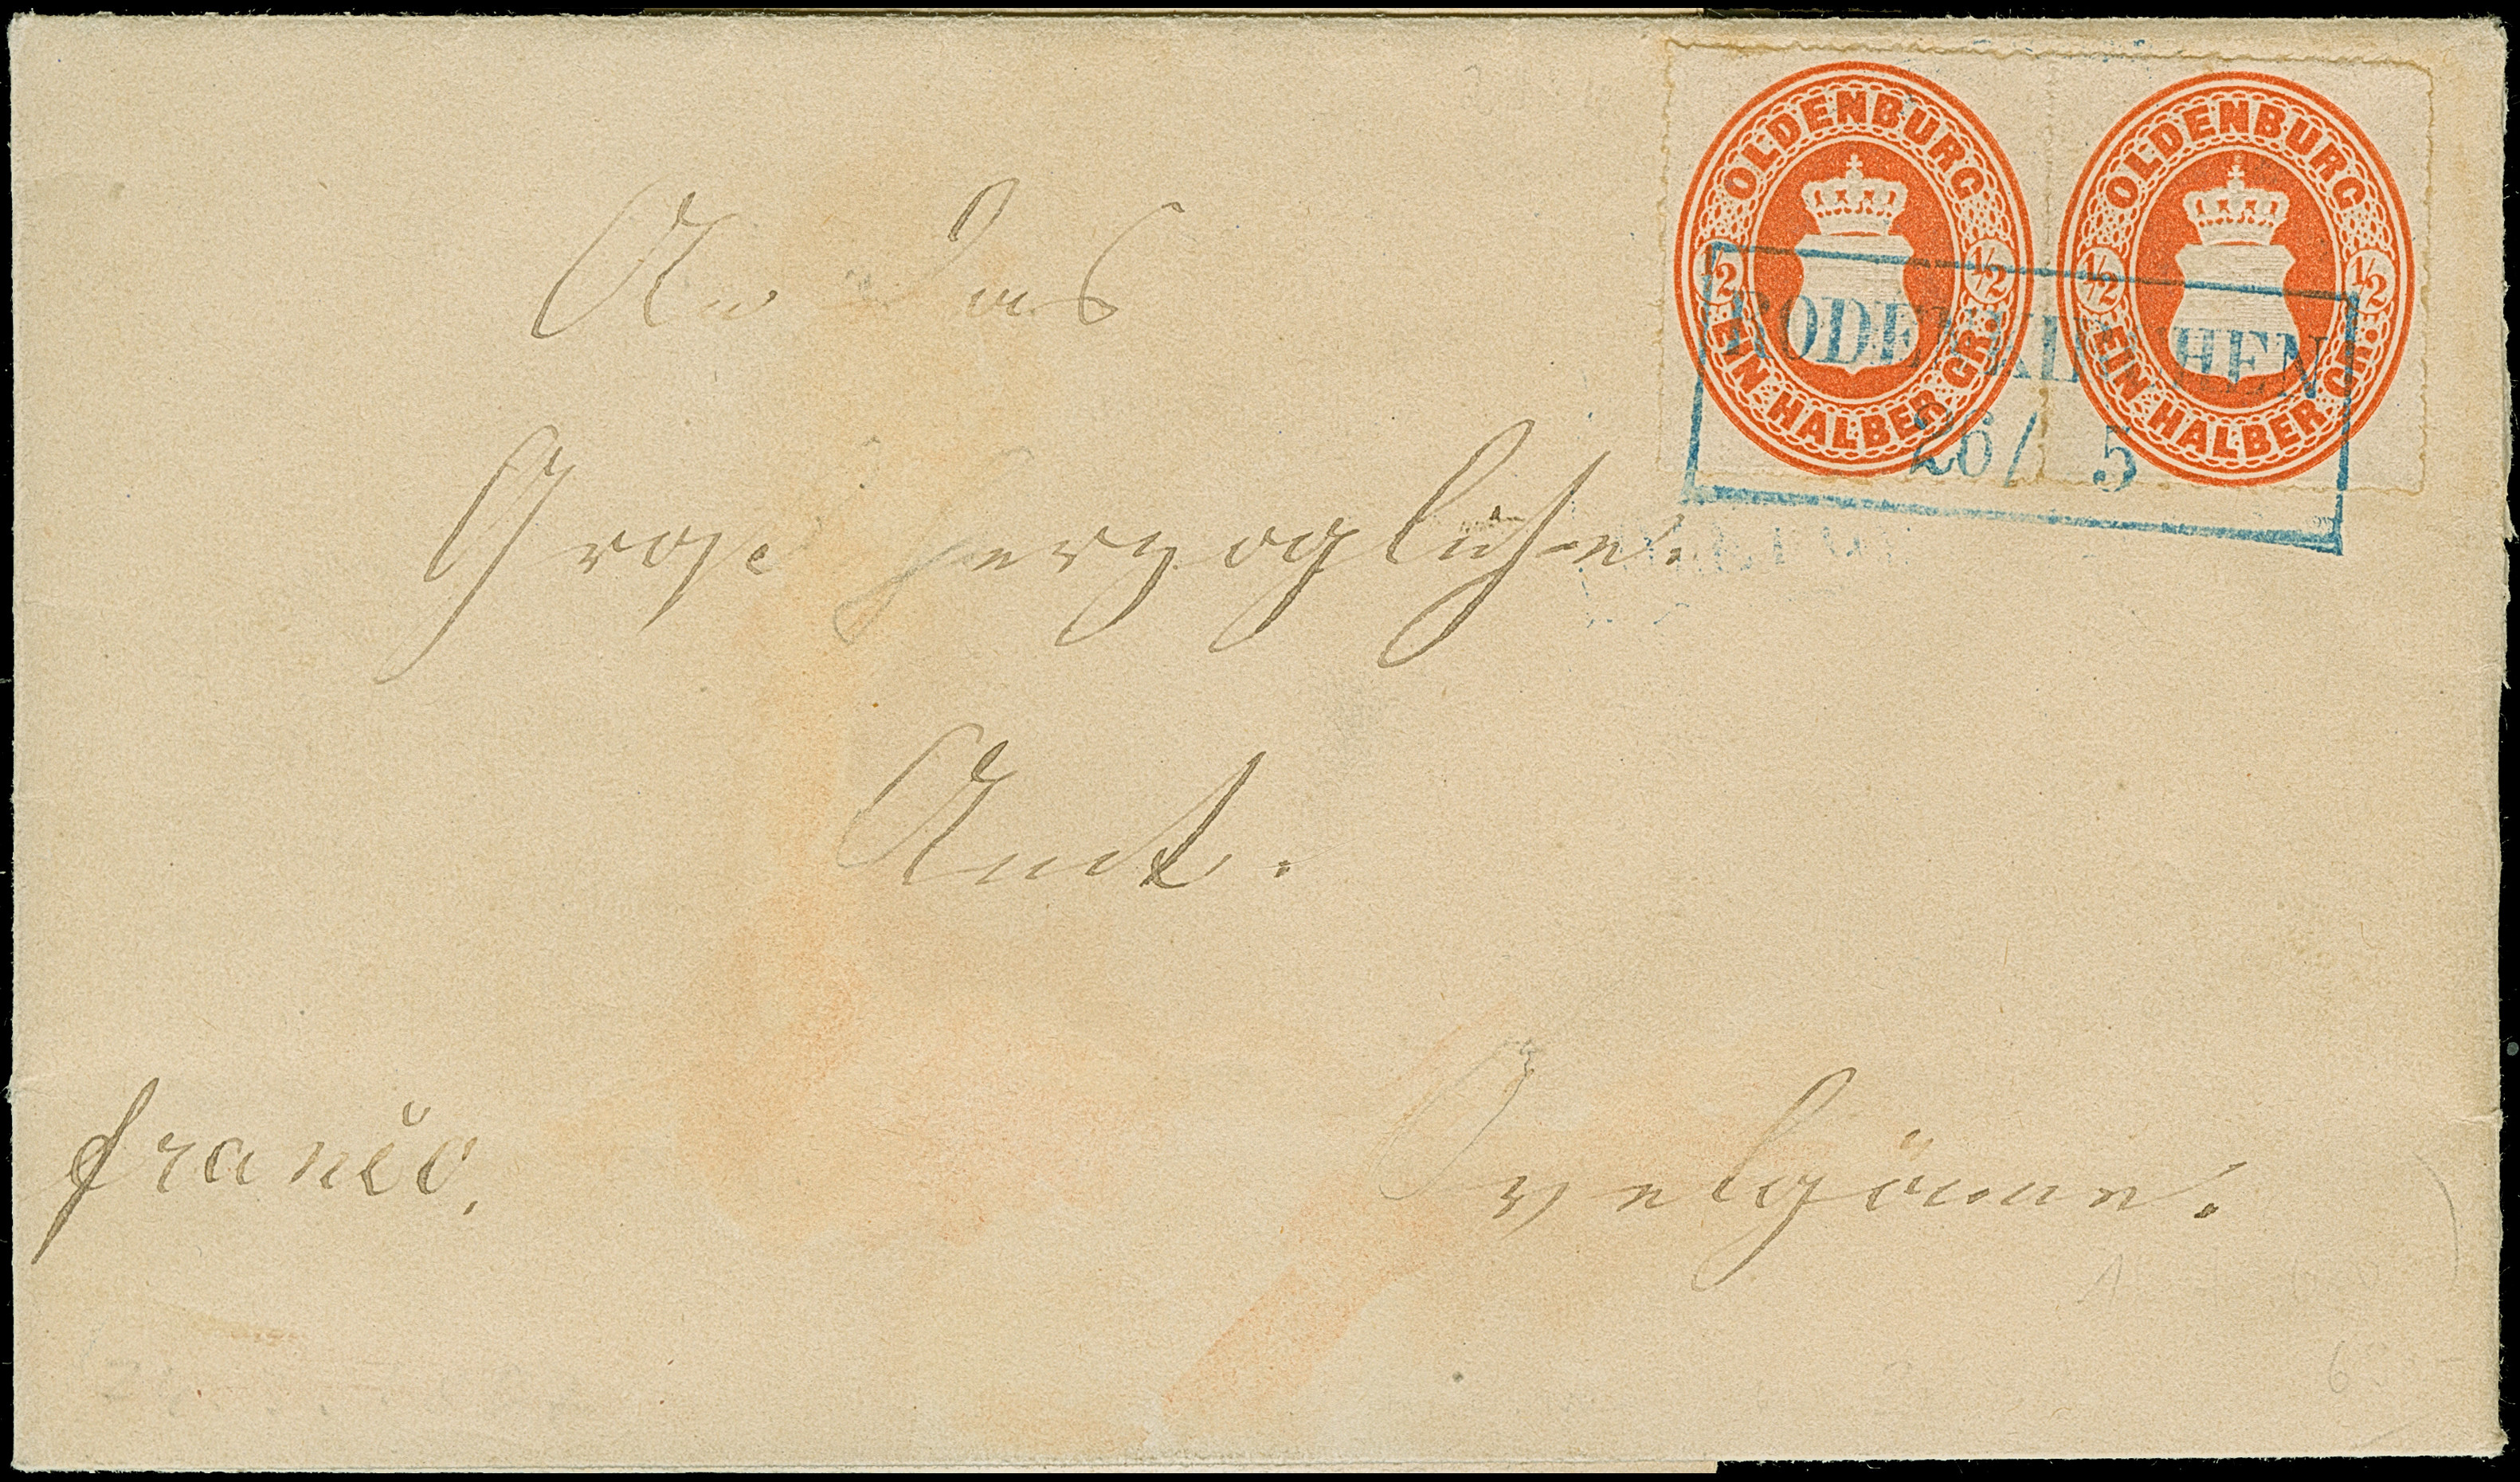 OLDENBURG
1/2 1/2
EIN HALBER GR.
OLDENBURG
1/2 1/2
EIN HALBER GR.
RODENKIRCHEN
26/ 5
An das
Großherzogliche.
Amt.
franco.
Ovelgönne.